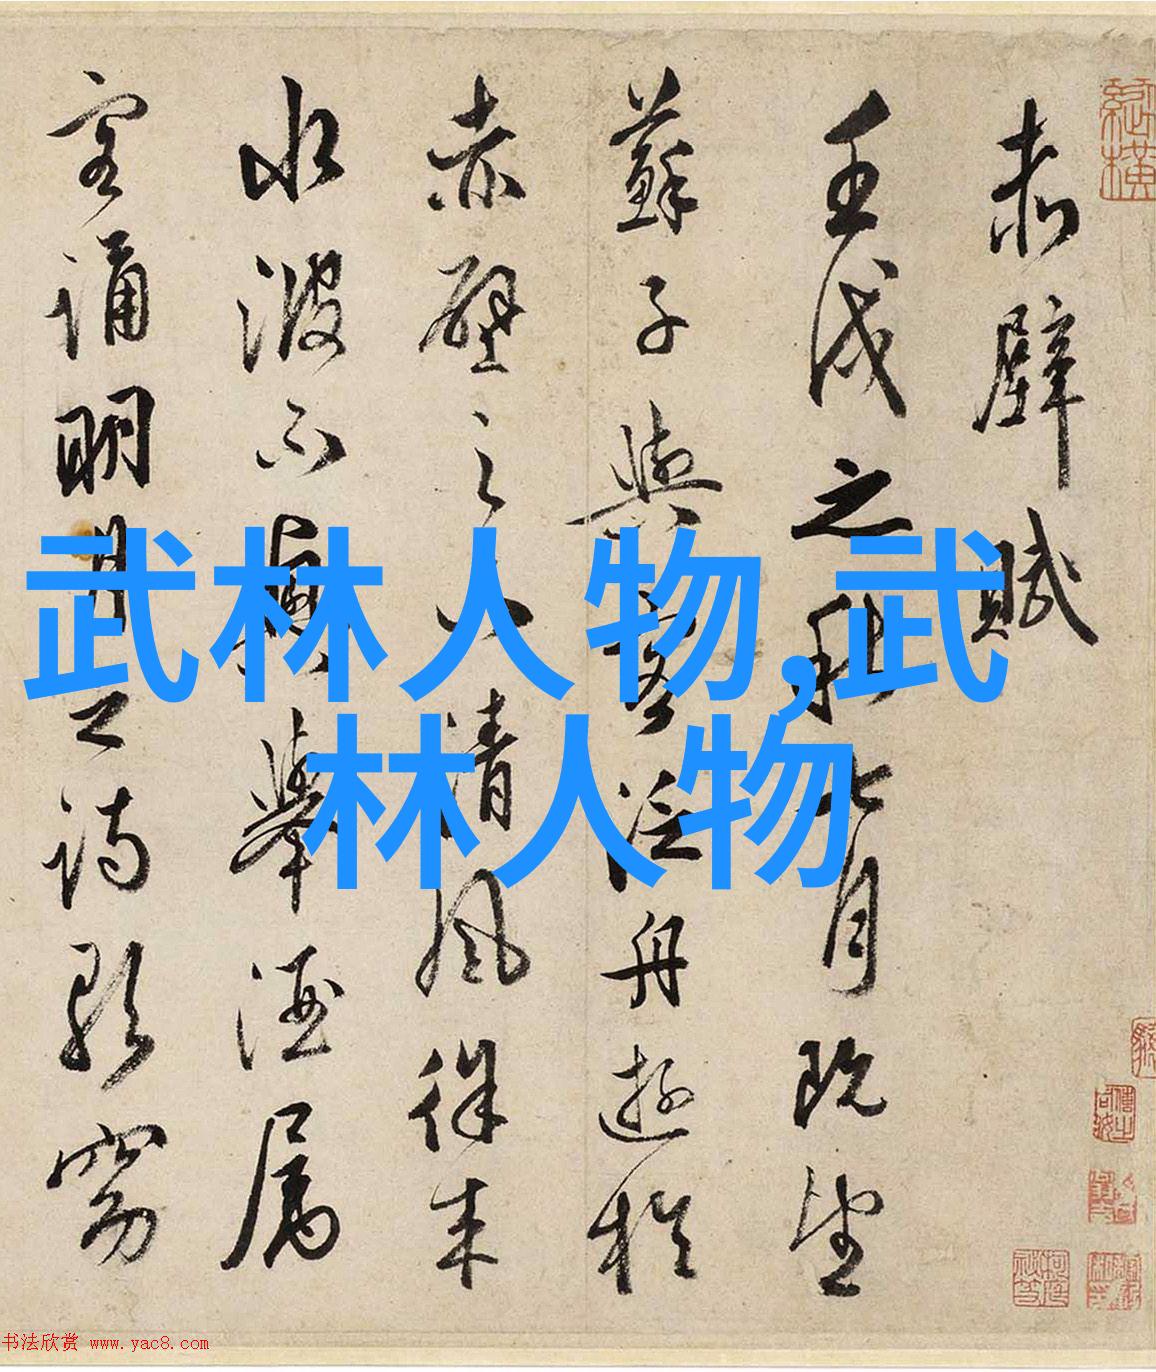 赤壁賦
壬戌之秋七月既望
蘇子與客泛舟遊於
赤壁之下清風徐来
水波不興舉酒属
客誦明月之詩歌窈
武林人物,武
林人物
书法欣赏 www.yac8.com